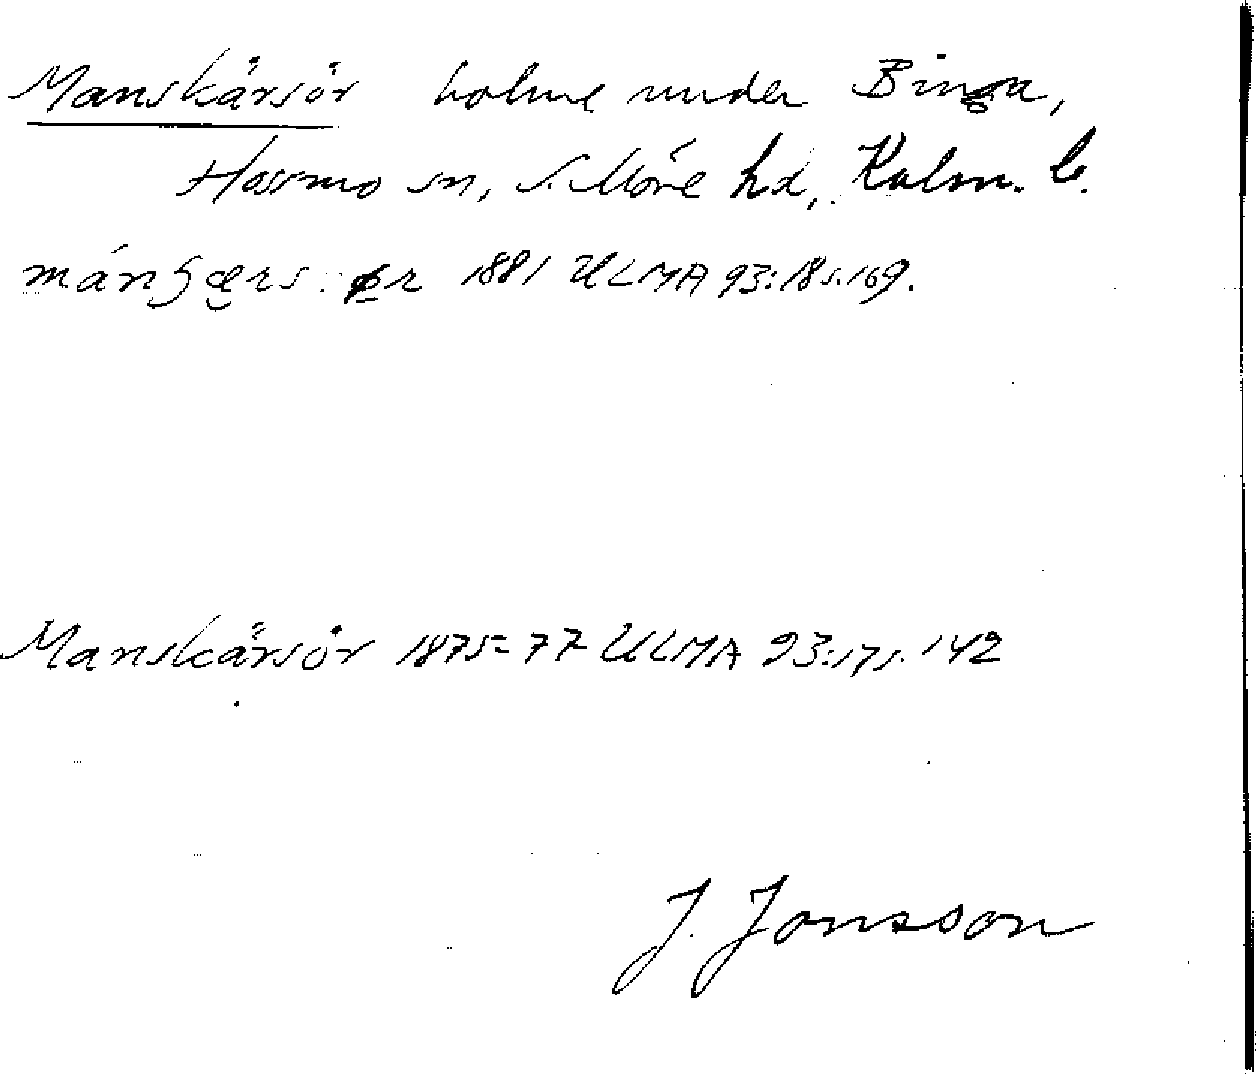 Manskärsör holme under Binga,
Hossmo sn, S. Möre hd, Kalm. l.
1881 ULMA 93:18 s. 169.
Manskärsör 1875-77 ULMA 93:17 s. 142
J. Jonsson